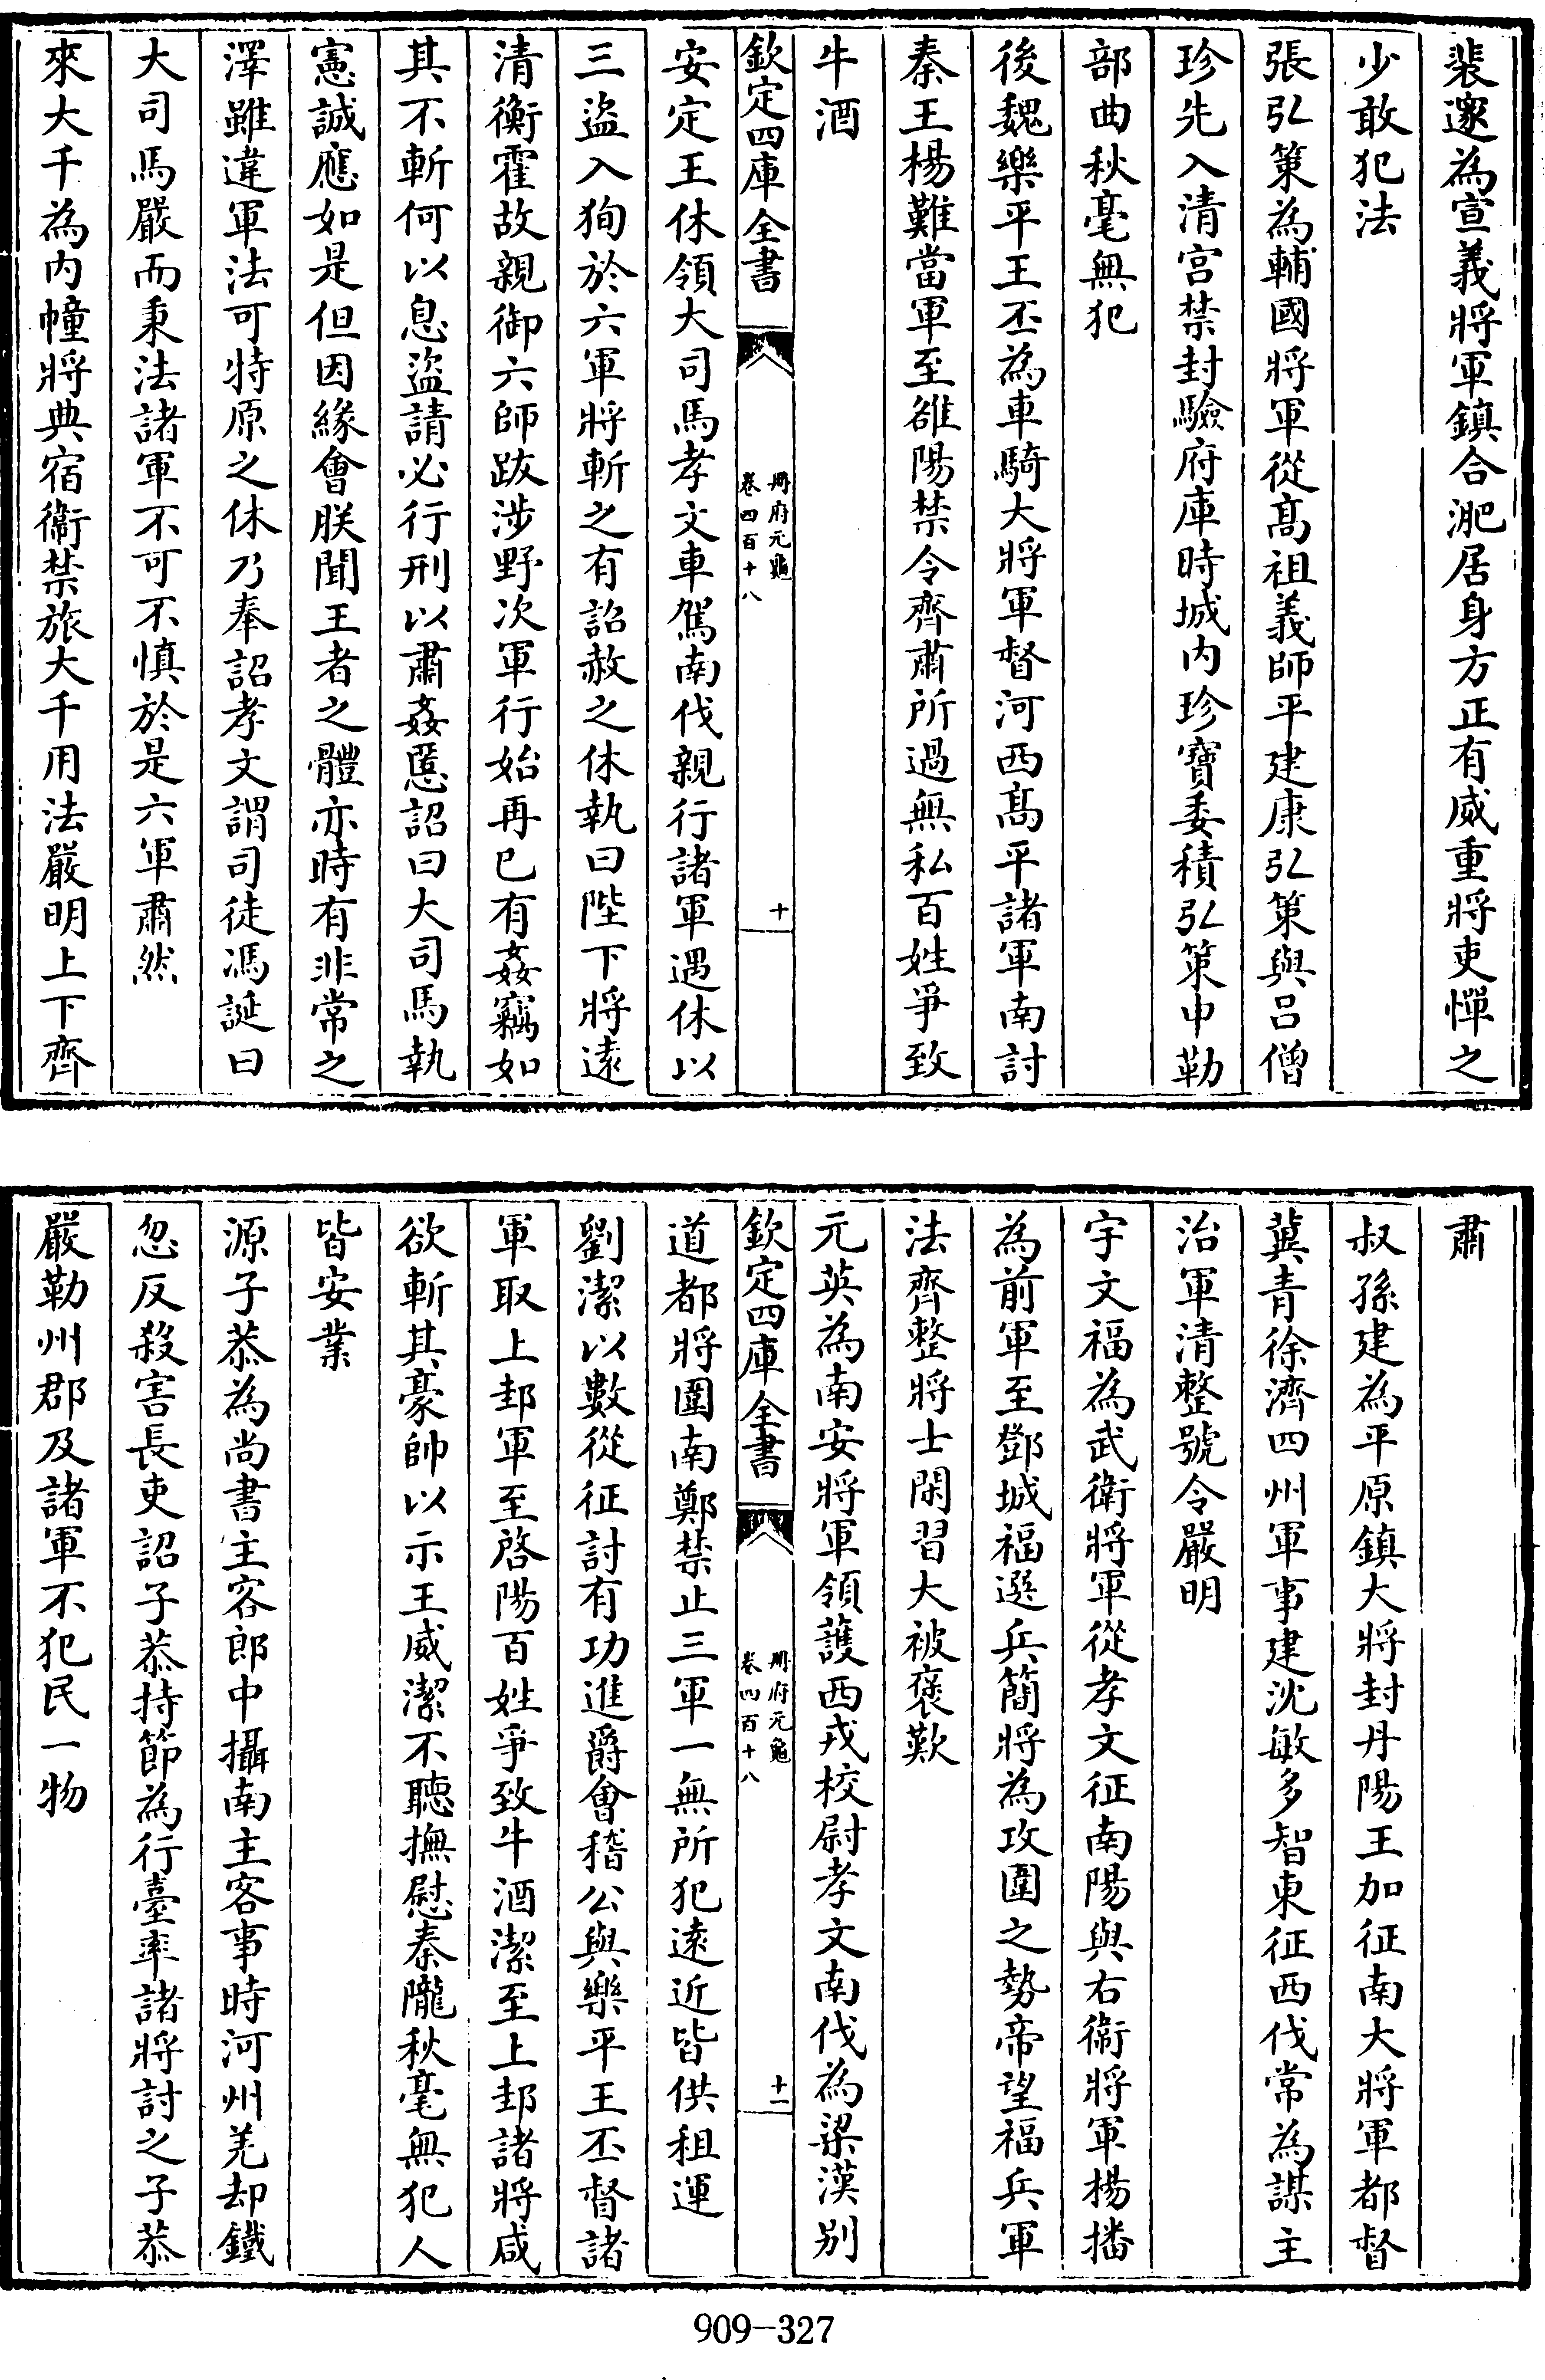 裴邃為宣義將軍鎮合淝居身方正有威重將吏憚之
少敢犯法
張弘策為輔國將軍從髙祖義師平建康弘策與吕僧
珍先入清宫禁封驗府庫時城内珍寶委積弘策申勒
部曲秋毫無犯
後魏樂平王丕為車騎大將軍督河西髙平諸軍南討
秦王楊難當軍至雒陽禁令齊肅所過無私百姓爭致
牛酒
欽定四庫全書
册府元龜
卷四百十八
十
安定王休領大司馬孝文車駕南伐親行諸軍遇休以
三盜入狥於六軍將斬之有詔赦之休執曰陛下將遠
清衡霍故親御六師跋涉野次軍行始再已有姦竊如
其不斬何以息盜請必行刑以肅姦慝詔曰大司馬執
憲誠應如是但因緣會朕聞王者之體亦時有非常之
澤雖違軍法可特原之休乃奉詔孝文謂司徒馮誕曰
大司馬嚴而秉法諸軍不可不慎於是六軍肅然
來大千為内幢將典宿衞禁旅大千用法嚴明上下齊
肅
叔孫建為平原鎮大將封丹陽王加征南大將軍都督
冀青徐濟四州軍事建沈敏多智東征西伐常為謀主
治軍清整號令嚴明
宇文福為武衛將軍從孝文征南陽與右衞將軍楊播
為前軍至鄧城福選兵簡將為攻圍之勢帝望福兵軍
法齊整將士閑習大被褒歎
元英為南安將軍領護西戎校尉孝文南伐為梁漢别
欽定四庫全書
册府元龜
卷四百十八
十一
道都將圍南鄭禁止三軍一無所犯遠近皆供租運
劉潔以數從征討有功進爵會稽公與樂平王丕督諸
軍取上邽軍至啓陽百姓爭致牛酒潔至上邽諸將咸
欲斬其豪帥以示王威潔不聽撫慰秦隴秋毫無犯人
皆安業
源子恭為尚書主客郎中攝南主客事時河州羌却鐵
忽反殺害長吏詔子恭持節為行臺率諸將討之子恭
嚴勒州郡及諸軍不犯民一物
909-327